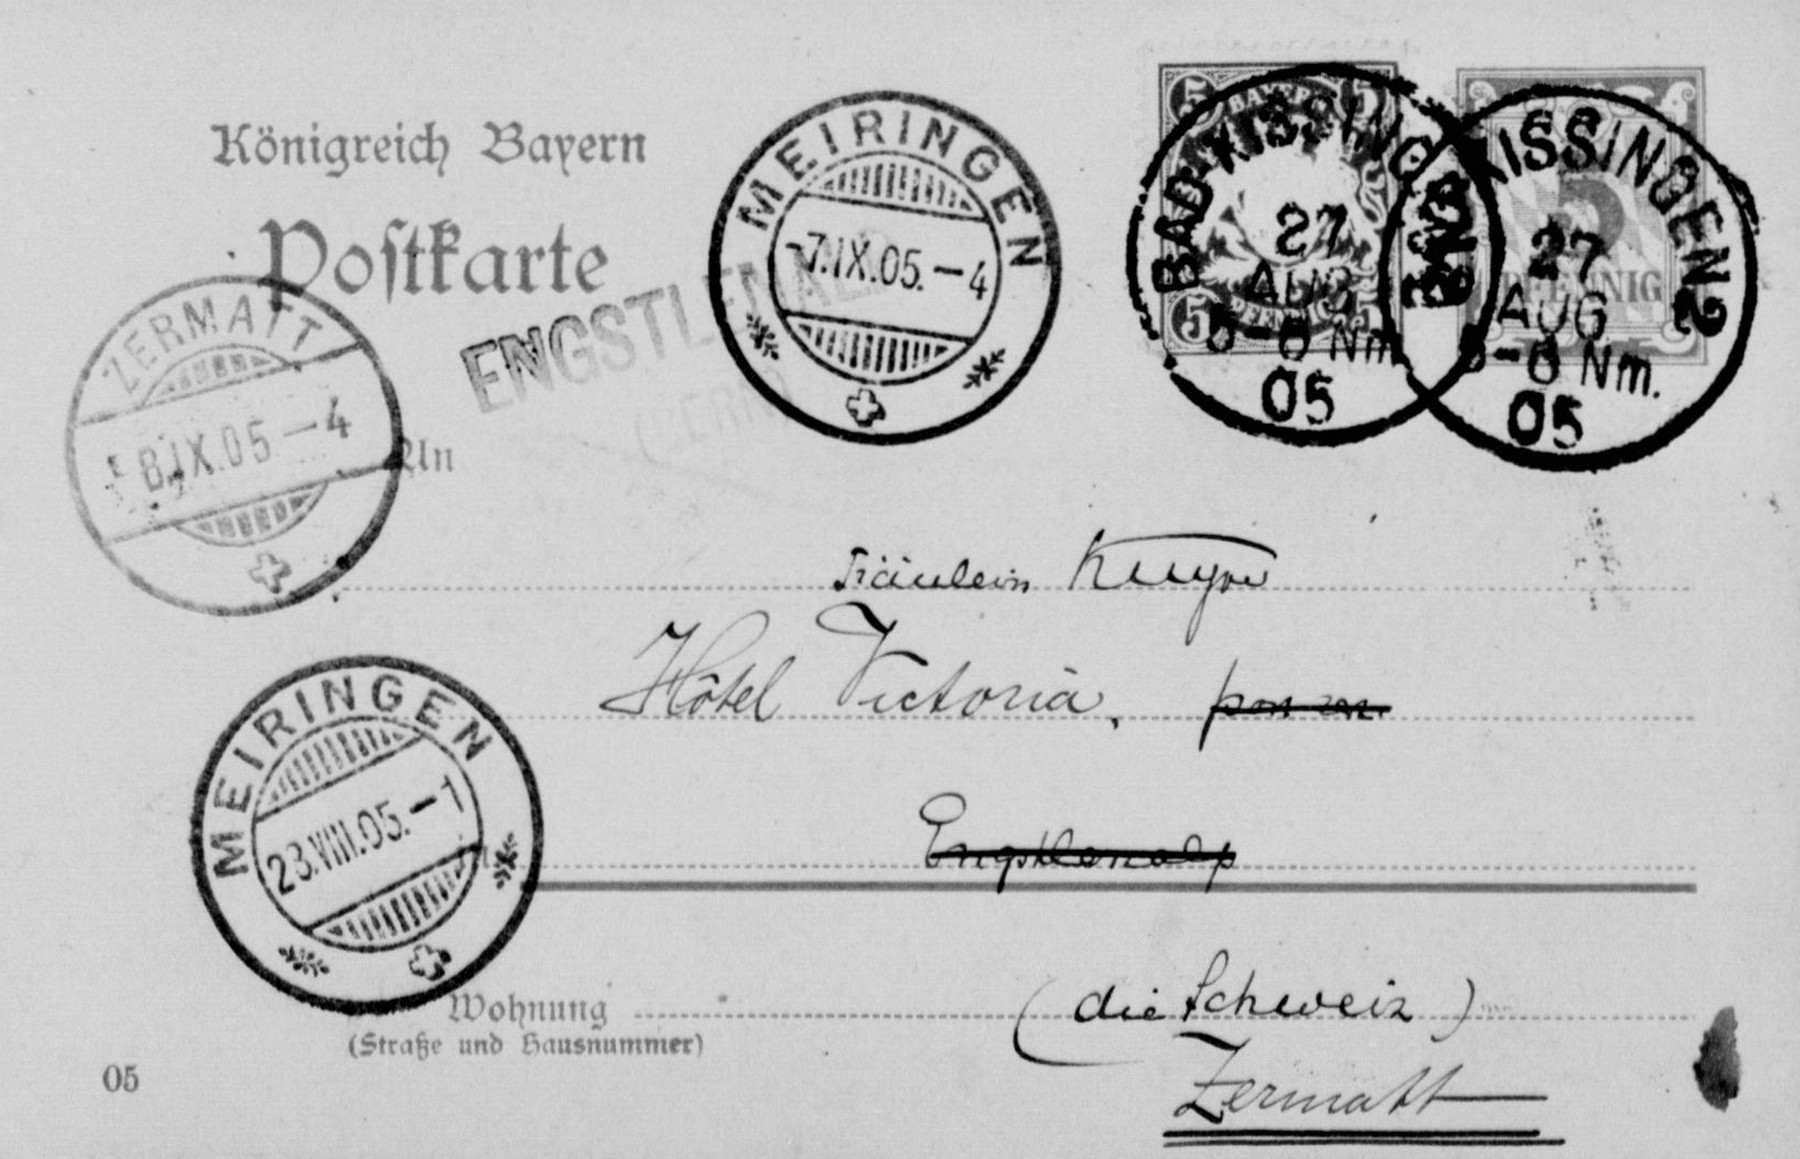 Königreich Bayern
Postkarte
MEIRINGEN
-7.IX.05.-4
5 BAYERN 5
5 PFENNIG 5
BAD KISSINGEN
27
AUG
5-6 Nm.
05
5
PFENNIG
BAD KISSINGEN 2
27
AUG
5-6 Nm.
05
ZERMATT
8.IX.05-4
ENGSTLENALP
(BERN)
An
Fräulein
Hôtel Victoria,
Engstlenalp
MEIRINGEN
23.VIII.05.-1
Wohnung
(Straße und Hausnummer)
(die Schweiz)
Zermatt
05